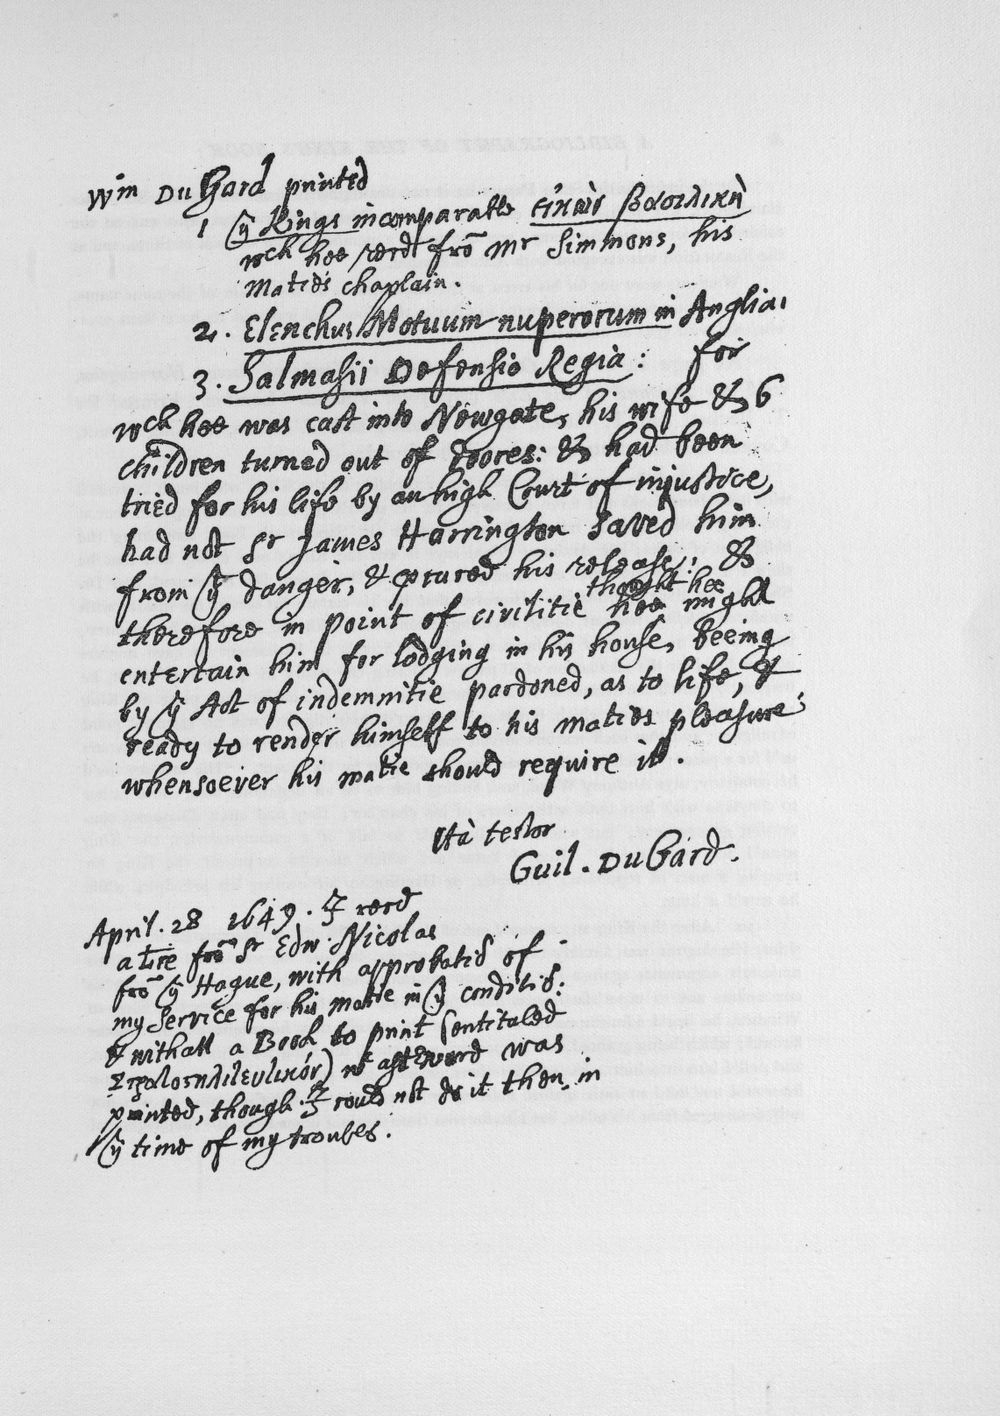 Wm Du Gard printed
1 ye Kings incomparable εἰκὼν βασιλικὴ
wch hee recd frō Mr Simmons, his
Maties chaplain.
2. Elenchus Motuum nuperorum in Anglia.
3. Salmasii Defensio Regia: for
wch hee was cast into Newgate, his wife & 6
children turned out of doores: & had been
tried for his life by an high Court of injustice,
had not Sr James Harrington saved him
from ye danger, & pcured his release: &
therefore in point of civilitie thought hee hee might
entertain him for lodging in his house, beeing
by ye Act of indemnitie pardoned, as to life, &
ready to render himself to his maties pleasure
whensoever his matie should require it.
Ità testor
Guil. Du Gard.
April. 28 1649. I recd
a Lre frō Sr Edw. Nicolas
frō ye Hague, with approbatiō of
my Service for his matie in ye conditiō:
& withall a Book to print (entitaled
) wc afterward was
printed, though I could not do it then, in
ye time of my troubles.